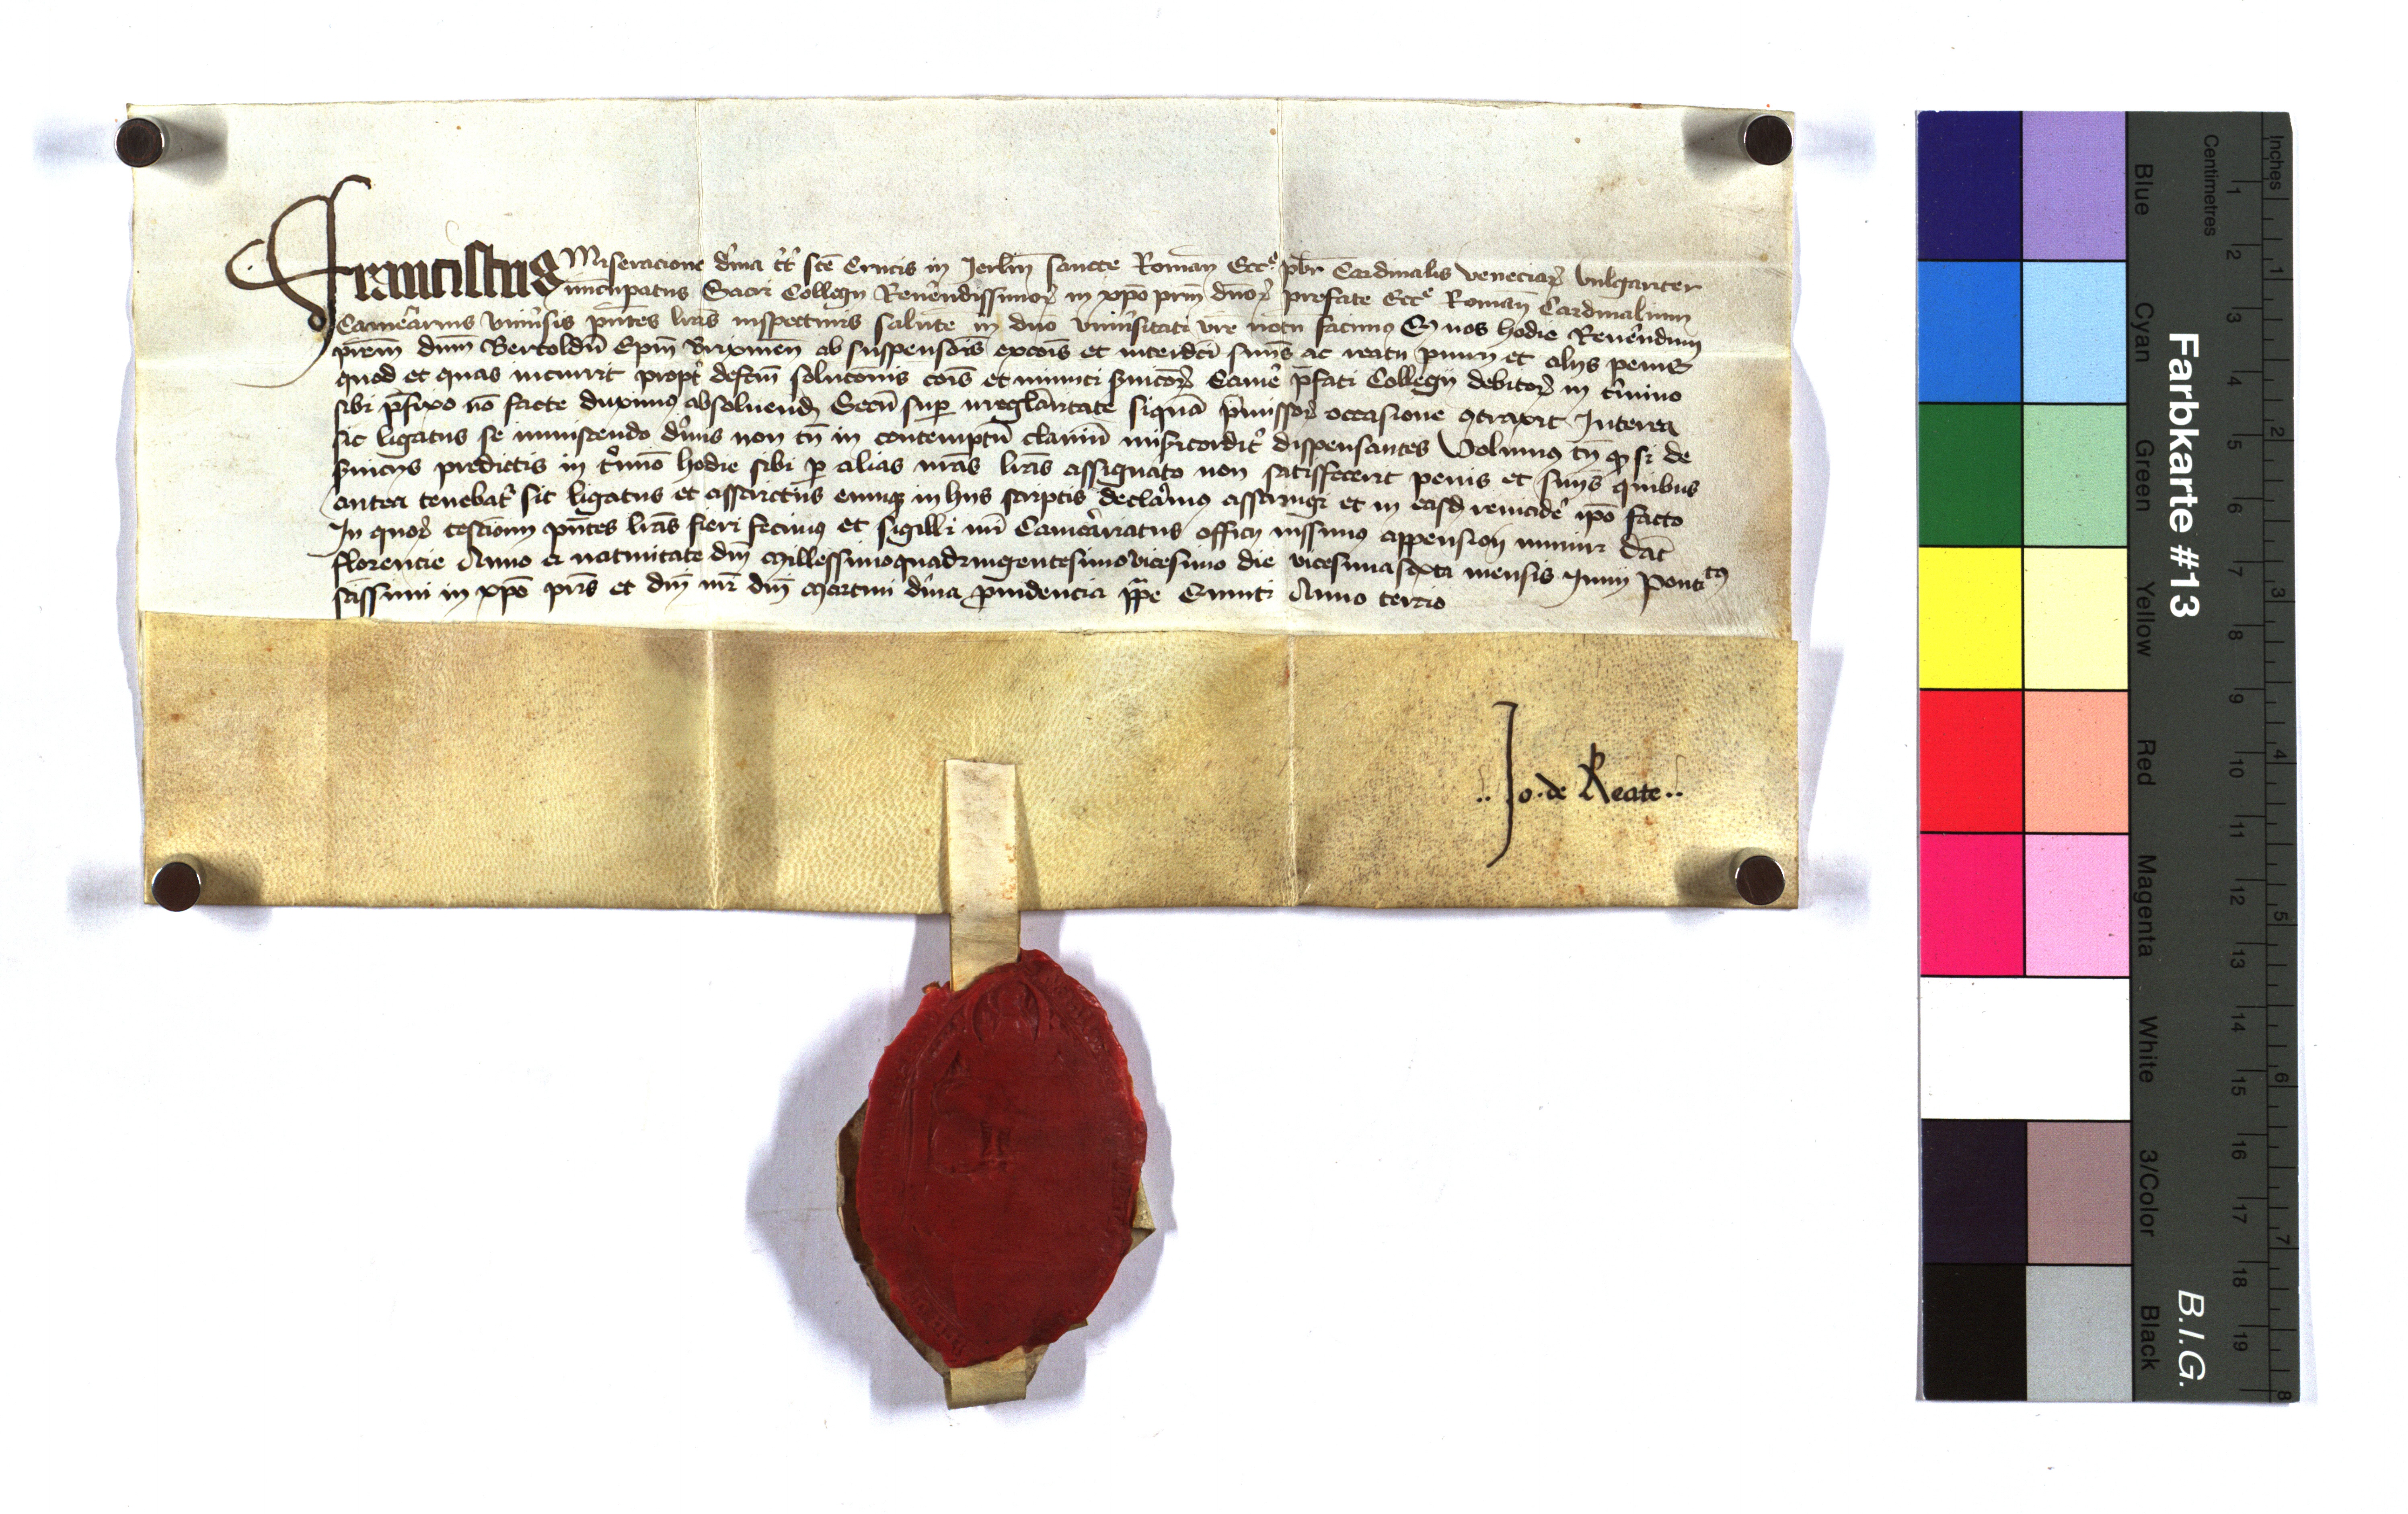 Franciscus Miseracione di'na tt' sce' Crucis in Jerl'm sancte Roman' Ecc'e pbr' Cardinalis Veneciar' vulgariter
nuncupatus Sacri Collegij Reuerendissimor' in xpo' prm' dnor' prefate Ecc'e Roman' Cardinalium
Camerarius vniu'sis pn'tes lras' inspecturis salute' in dno' vniu'sitati vre' notu' facimus Q' nos hodie Reuerendum
prem' dnm' Bertoldu' Epm' Brixinen' ab suspensois' excois' et interdci' sniis' ac reatu piurij et alijs penis
quod et quas incurrit propt' defctm' solucionis cois' et minuti s'uicior' Came' p'fati Collegij debitor' in t'mino
sibi p'fixo no' facte duximus absoluend' Secu' sup' irregularitate siqua' p'missor' occasione 9traxit Interea
sic ligatus se inmiscendo di'nis non tn' in contemptu' clauiu' mis'icordit' dispensantes Volumus tn' q' si de
s'uicijs predictis in t'mi'o hodie sibi p' alias nras' lras' assignato non satisfecerit penis et sniis' quibus
antea tenebat' sic ligatus et astrictus eumq' in hiis scriptis declaramus astringi et in easd' reincide' ipo' facto
In quor' testimonium pn'tes lras' fieri fecimus et sigilli nri' Camerariatus officij iussimus appension' muniri Dat'
florencie Anno a natiuitate dni' Millessimoquadringentesimovicesimo die vicesimasexta mensis Junij Ponti'tus
s'assimi in xpo' pris' et dni' nri' dni' Martini di'na prouidencia ppe' Quinti Anno tercio
.. Jo. de Reate ..
Farbkarte #13
B.I.G.
Blue Cyan Green Yellow Red Magenta White 3/Color Black
Centimetres
1 2 3 4 5 6 7 8 9 10 11 12 13 14 15 16 17 18 19
Inches
1 2 3 4 5 6 7 8